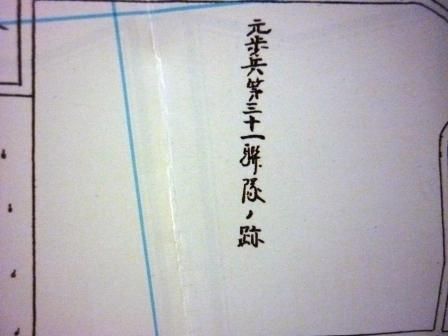 元歩兵第三十一聯隊ノ跡